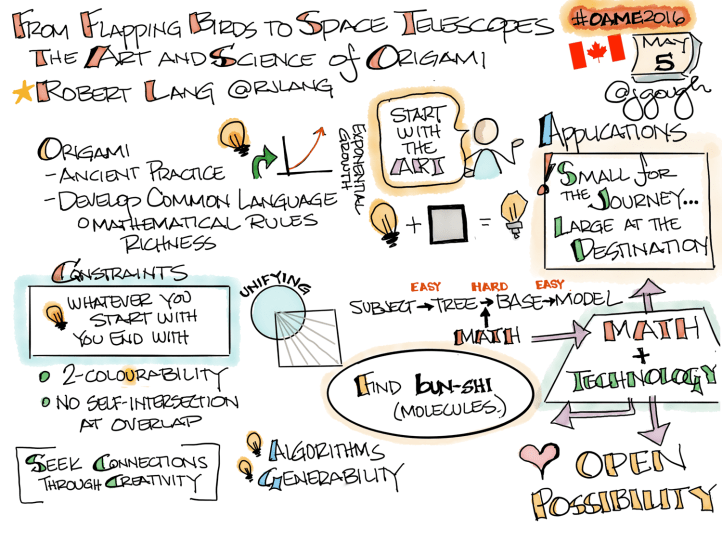 From Flapping Birds to Space Telescopes
The Art and Science of Origami
Robert Lang @rjlang
#OAME2016
May
5
@jgough
Origami
- Ancient Practice
- Develop Common Language
o Mathematical Rules
Richness
Exponential
Growth
Start
with
the
Art
+
=
Applications
! Small for
the Journey...
Large at the
Destination
Constraints
Whatever you
start with
you end with
• 2-colourability
• No self-intersection
at overlap
Unifying
Easy Hard Easy
Subject → Tree → Base → Model
Math
Find bun-shi
(molecules.)
Math
+
Technology
Seek Connections
Through Creativity
Algorithms
Generability
Open
Possibility